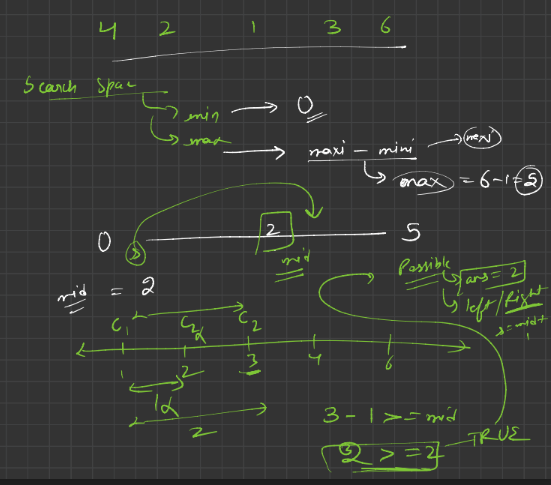 4 2 1 3 6
Search Spac
min → 0
max → maxi - mini → maxi
max = 6-1=5
0 2 5
s mid
mid = 2
Possible ans = 2
left/Right
s=mid+1
C1 C2 C2
1 2 3 4 6
1
2
3 - 1 >= mid
2 >= 2 TRUE